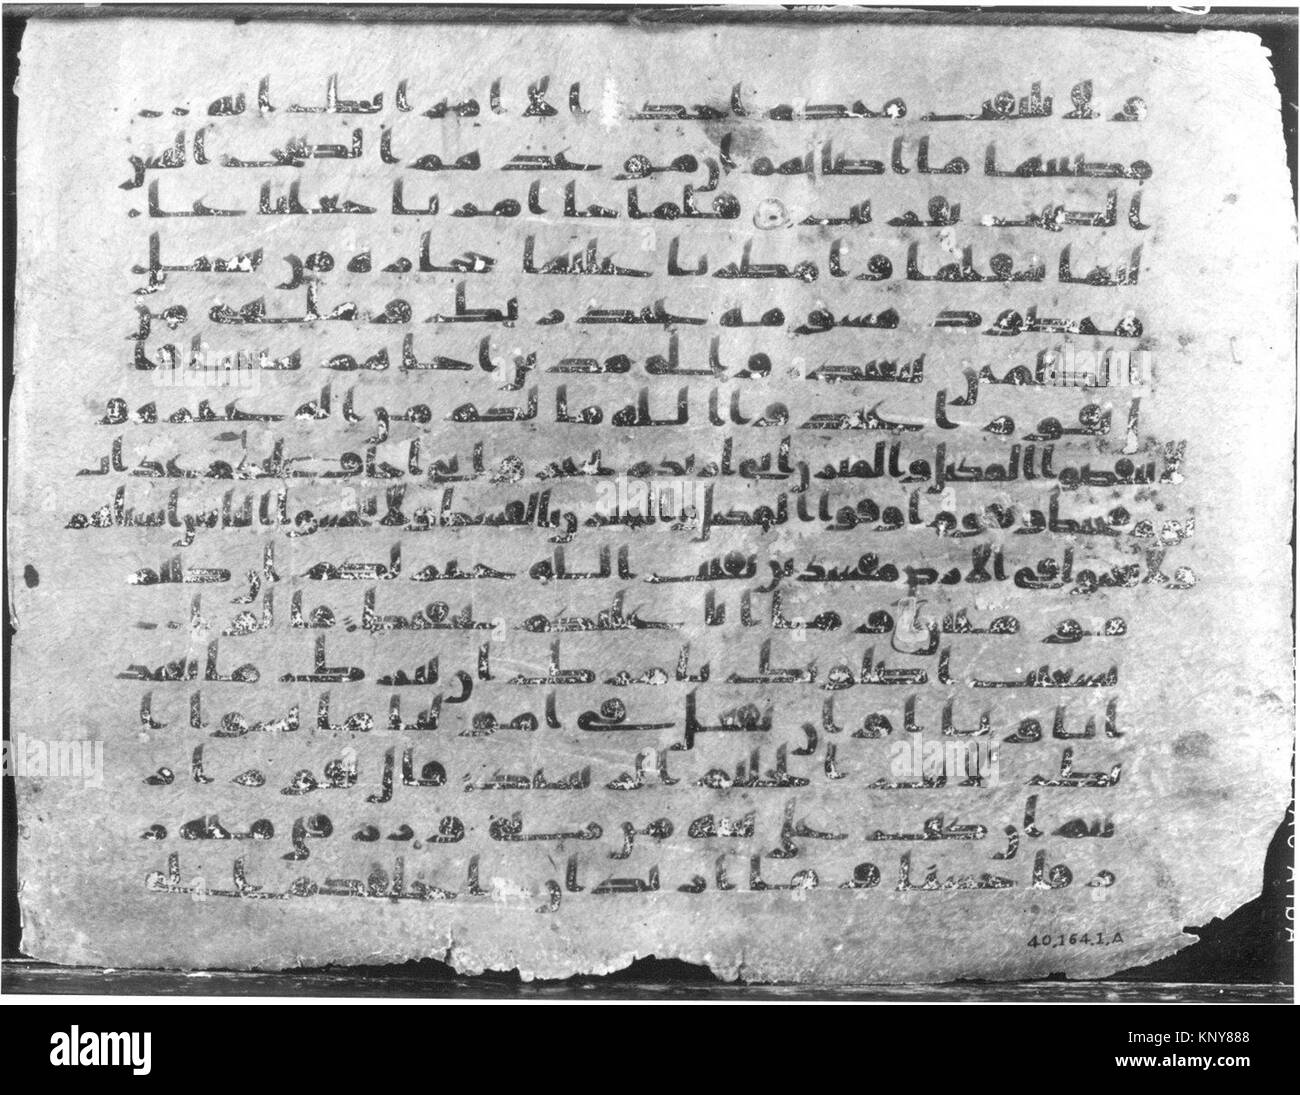 ولا يلتفت منكم احد الا امراتك انه
مصيبها ما اصابهم ان موعدهم الصبح اليس
الصبح بقريب فلما جا امرنا جعلنا عا
ليها سافلها وامطرنا عليها حجارة من سجيل
منضود مسومة عند ربك وما هي من
الظلمين ببعيد والى مدين اخاهم شعيبا قا
ل يقوم اعبدوا الله ما لكم من اله غيره و
لا تنقصوا المكيل والميزن اني اريكم بخير واني اخاف عليكم عذاب
يوم محيط ويقوم اوفوا المكيل والميزن بالقسط ولا تبخسوا الناس اشياهم
ولا تعثوا في الارض مفسدين بقيت الله خير لكم ان كنتم
مومنين وما انا عليكم بحفيظ قالوا يا
شعيب اصلوتك تامرك ان نترك ما يعبد
اباونا او ان نفعل في امولنا ما نشوا ا
نك لانت الحليم الرشيد قال يقوم ارا
يتم ان كنت على بينة من ربي ورزقني منه ر
زقا حسنا وما اريد ان اخالفكم الى
40.164.1.A
alamy
Image ID: KNY888
www.alamy.com